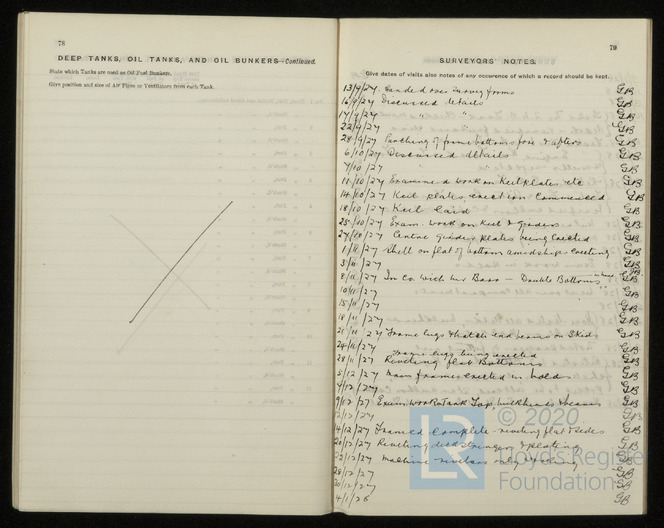 78
DEEP TANKS, OIL TANKS, AND OIL BUNKERS—Continued.
State which Tanks are used as Oil Fuel Bunkers.
Give position and size of Air Pipes or Ventilators from each Tank.
79
SURVEYORS' NOTES.
Give dates of visits also notes of any occurrence of which a record should be kept.
13/9/27 Handed over survey forms GB
16/9/27 Discussed details GB
17/9/27 " " GB
22/9/27 GB
28/9/27 of frame bottoms fore & afters GB
6/10/27 Discussed details GB
7/10/27 " GB
11/10/27 Examined work on Keel plates etc GB
14/10/27 Keel plates erection commenced GB
18/10/27 Keel laid GB
25/10/27 Exam. work on Keel & girders GB
27/10/27 Centre girders plates being erected GB
1/11/27 Shell on flat of bottom amidships erecting GB
3/11/27 GB
8/11/27 In Co. with Mr Bass — Double Bottoms GB
10/11/27 GB
15/11/27 GB
18/11/27 GB
21/11/27 Frame lugs & hatch end beams on Skids GB
24/11/27 Frame lugs being erected GB
28/11/27 Riveting flat Bottoms GB
5/12/27 Main frames erected in holds GB
7/12/27 GB
9/12/27 Exam. work on Tank Top, bulkheads & beams GB
12/12/27 GB
14/12/27 Framed complete - riveting flat & sides GB
20/12/27 Riveting deck stringers & plating GB
22/12/27 Machine riveters only working GB
28/12/27 GB
30/12/27 GB
4/1/28 GB
© 2020
LR
Lloyd's Register
Foundation